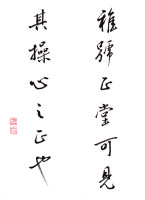 雅號正堂可見
其操心之正也